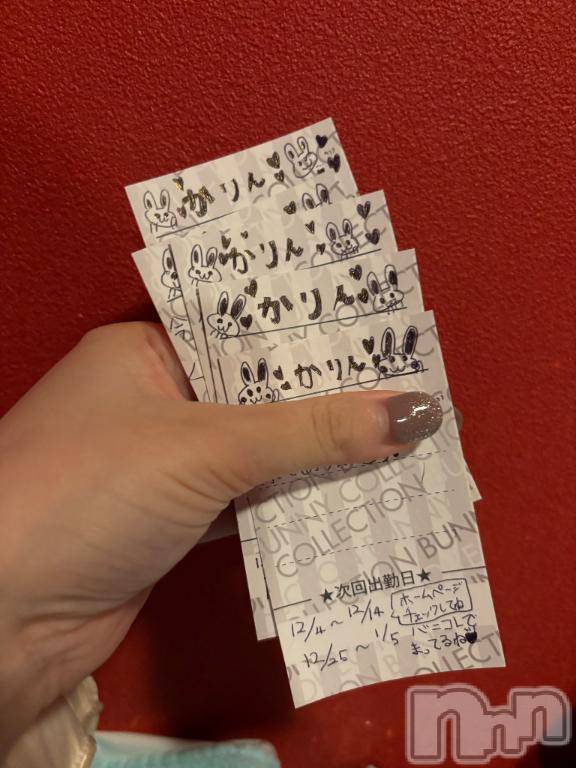 かりん
かりん
かりん
かりん
BUNNY COLLECTION
COLLECTION
★次回出勤日★
12/4 ~ 12/14
ホームページ
チェックしてね
12/25 ~ 1/5
バニコレで
まってるね♥
nnn